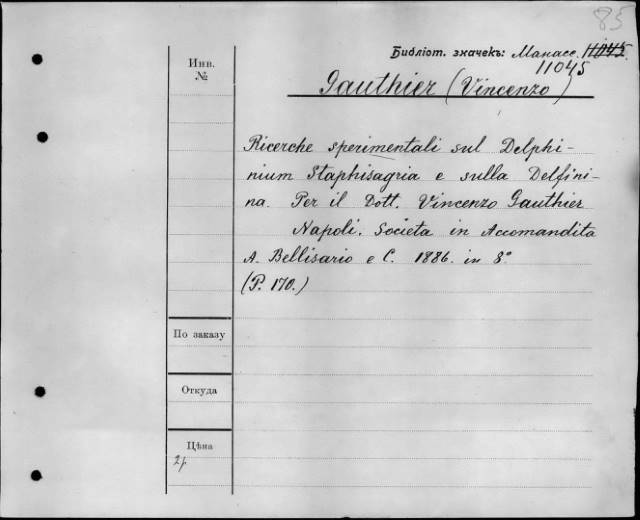 85
Библіот. значекъ: Манасс. 11045
11045
Инв.
№
Gauthier (Vincenzo)
Ricerche sperimentali sul Delphi-
nium Staphisagria e sulla Delfini-
na. Per il Dott. Vincenzo Gauthier
Napoli. Societa in Accomandita
A. Bellisario e C. 1886. in 8°
(P. 170.)
По заказу
Откуда
Цѣна
2р